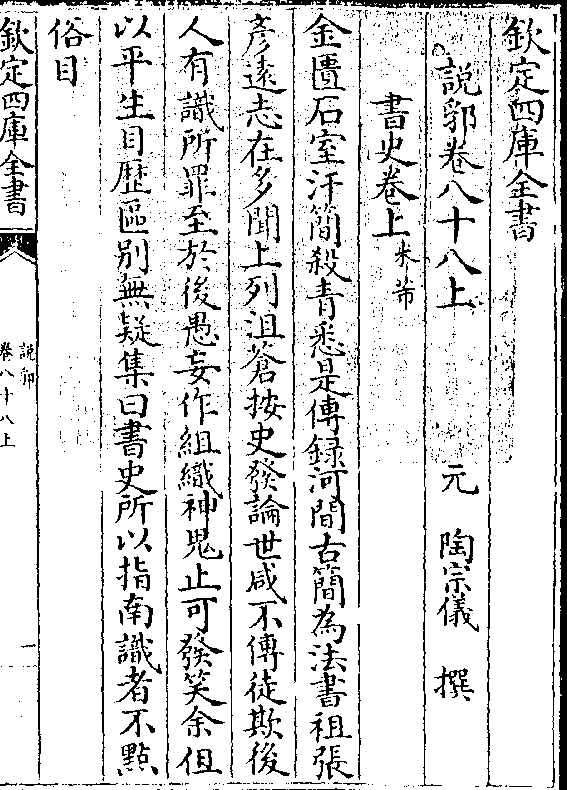 欽定四庫全書
說郛卷八十八上
元 陶宗儀 撰
書史卷上 米芾
金匱石室汗簡殺青悉是傳録河間古簡為法書祖張
彥遠志在多聞上列沮蒼按史發論世咸不傳徒欺後
人有識所罪至於後愚妄作組織神鬼止可發笑余但
以平生目歴區別無疑集曰書史所以指南識者不點
俗目
欽定四庫全書
說郛
卷八十八上
一